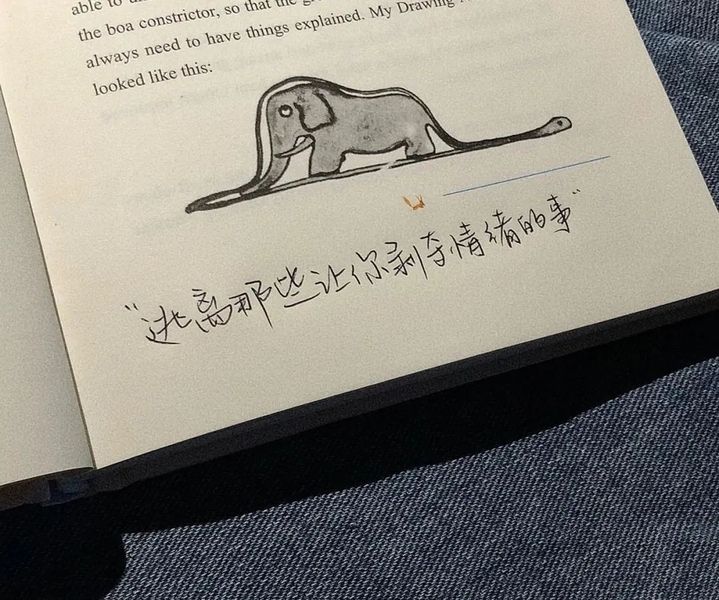 able to
the boa constrictor, so that the
always need to have things explained. My Drawing
looked like this:
“逃离那些让你剥夺情绪的事”